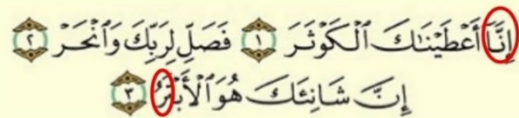 إِنَّآ أَعْطَيْنَٰكَ ٱلْكَوْثَرَ ١ فَصَلِّ لِرَبِّكَ وَٱنْحَرْ ٢
إِنَّ شَانِئَكَ هُوَ ٱلْأَبْتَرُ ٣